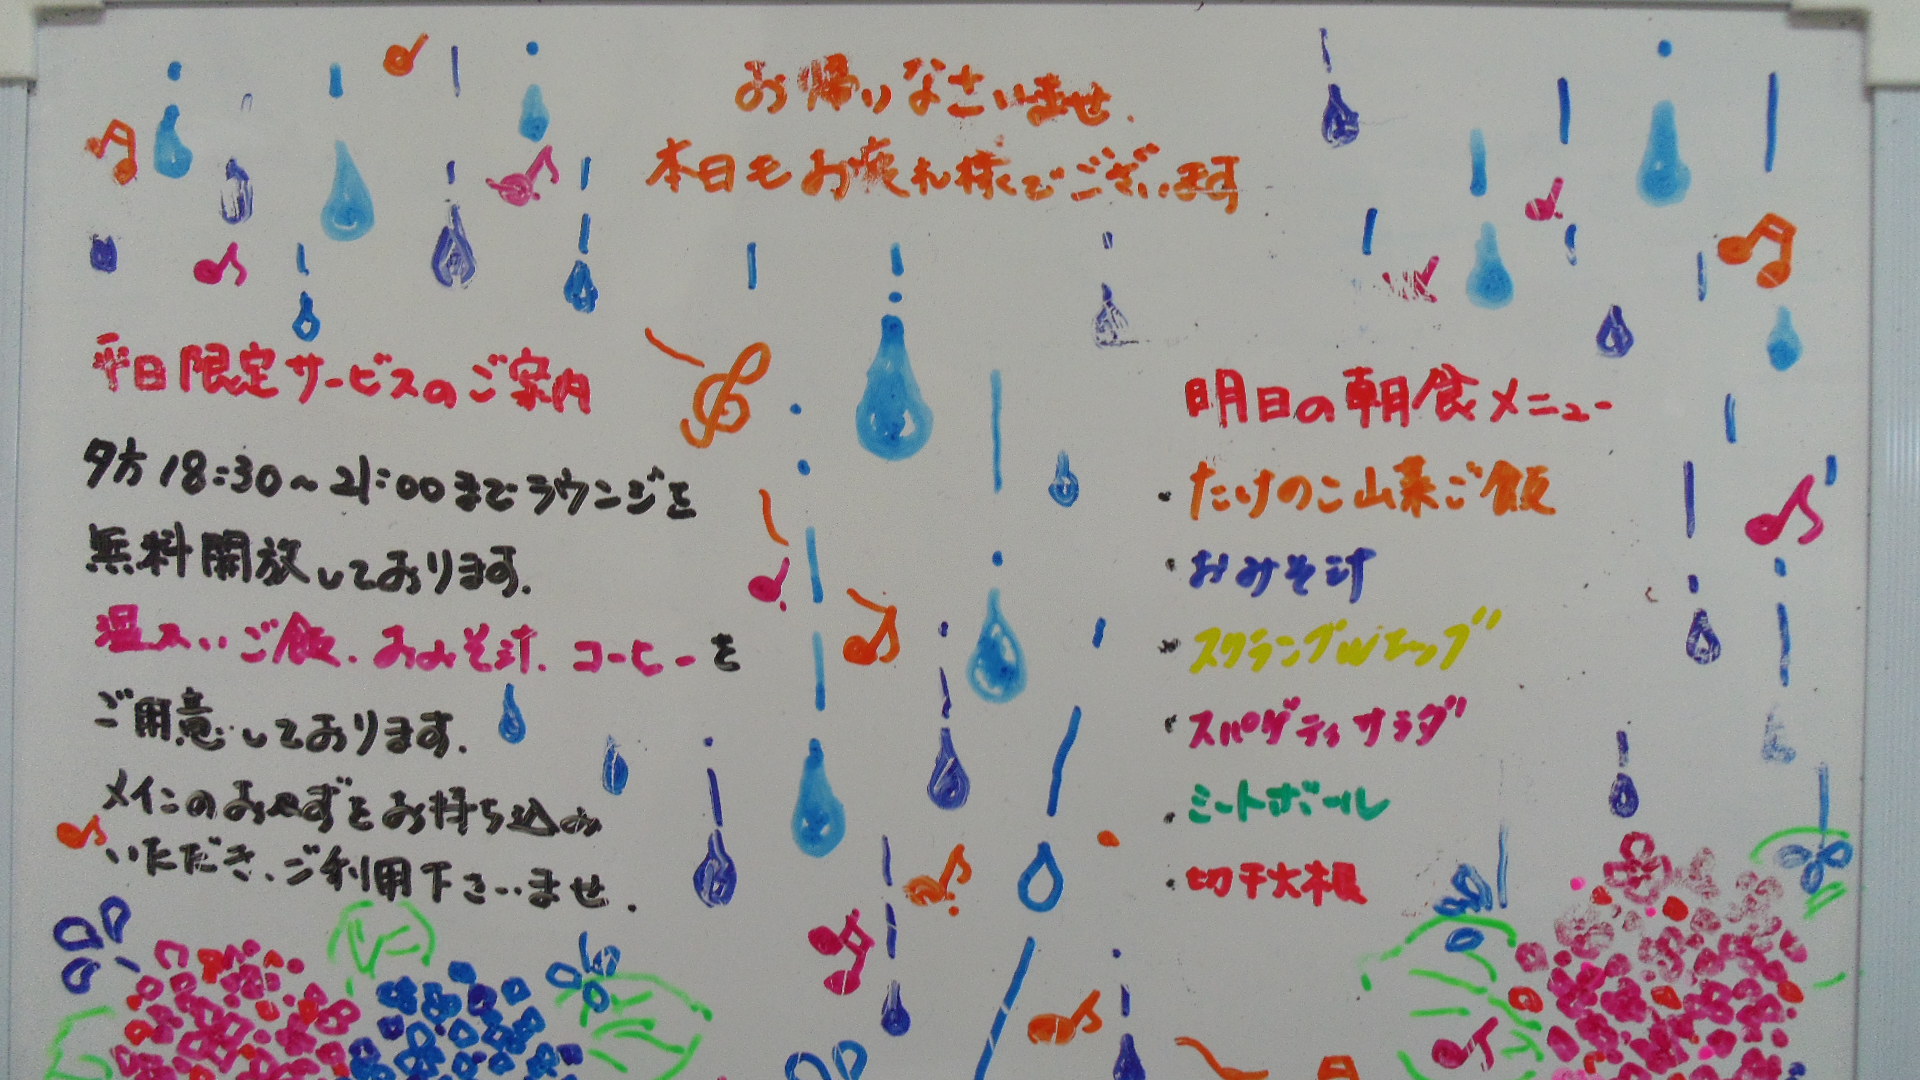 お帰りなさいませ.
本日もお疲れ様でございます
平日限定サービスのご案内
夕方18:30~21:00までラウンジを
無料開放しております.
温かいご飯.おみそ汁.コーヒーを
ご用意しております.
メインのおかずをお持ち込み
いただき、ご利用下さいませ.
明日の朝食メニュー
・たけのこ山菜ご飯
・おみそ汁
・スクランブルエッグ
・スパゲティサラダ
・ミートボール
・切干大根